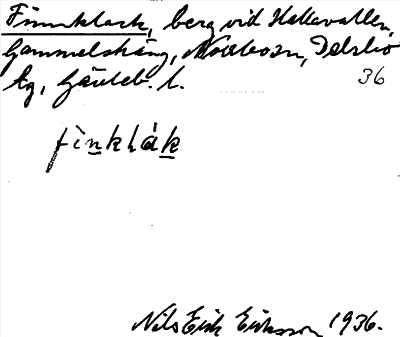 Finnklack, berg vid Hallavallen,
Gammelsäng, Norrbosn, Delsbo
sg, Gävleb. l. 36
fìnklàk
Nils Erik Eriksson 1936.